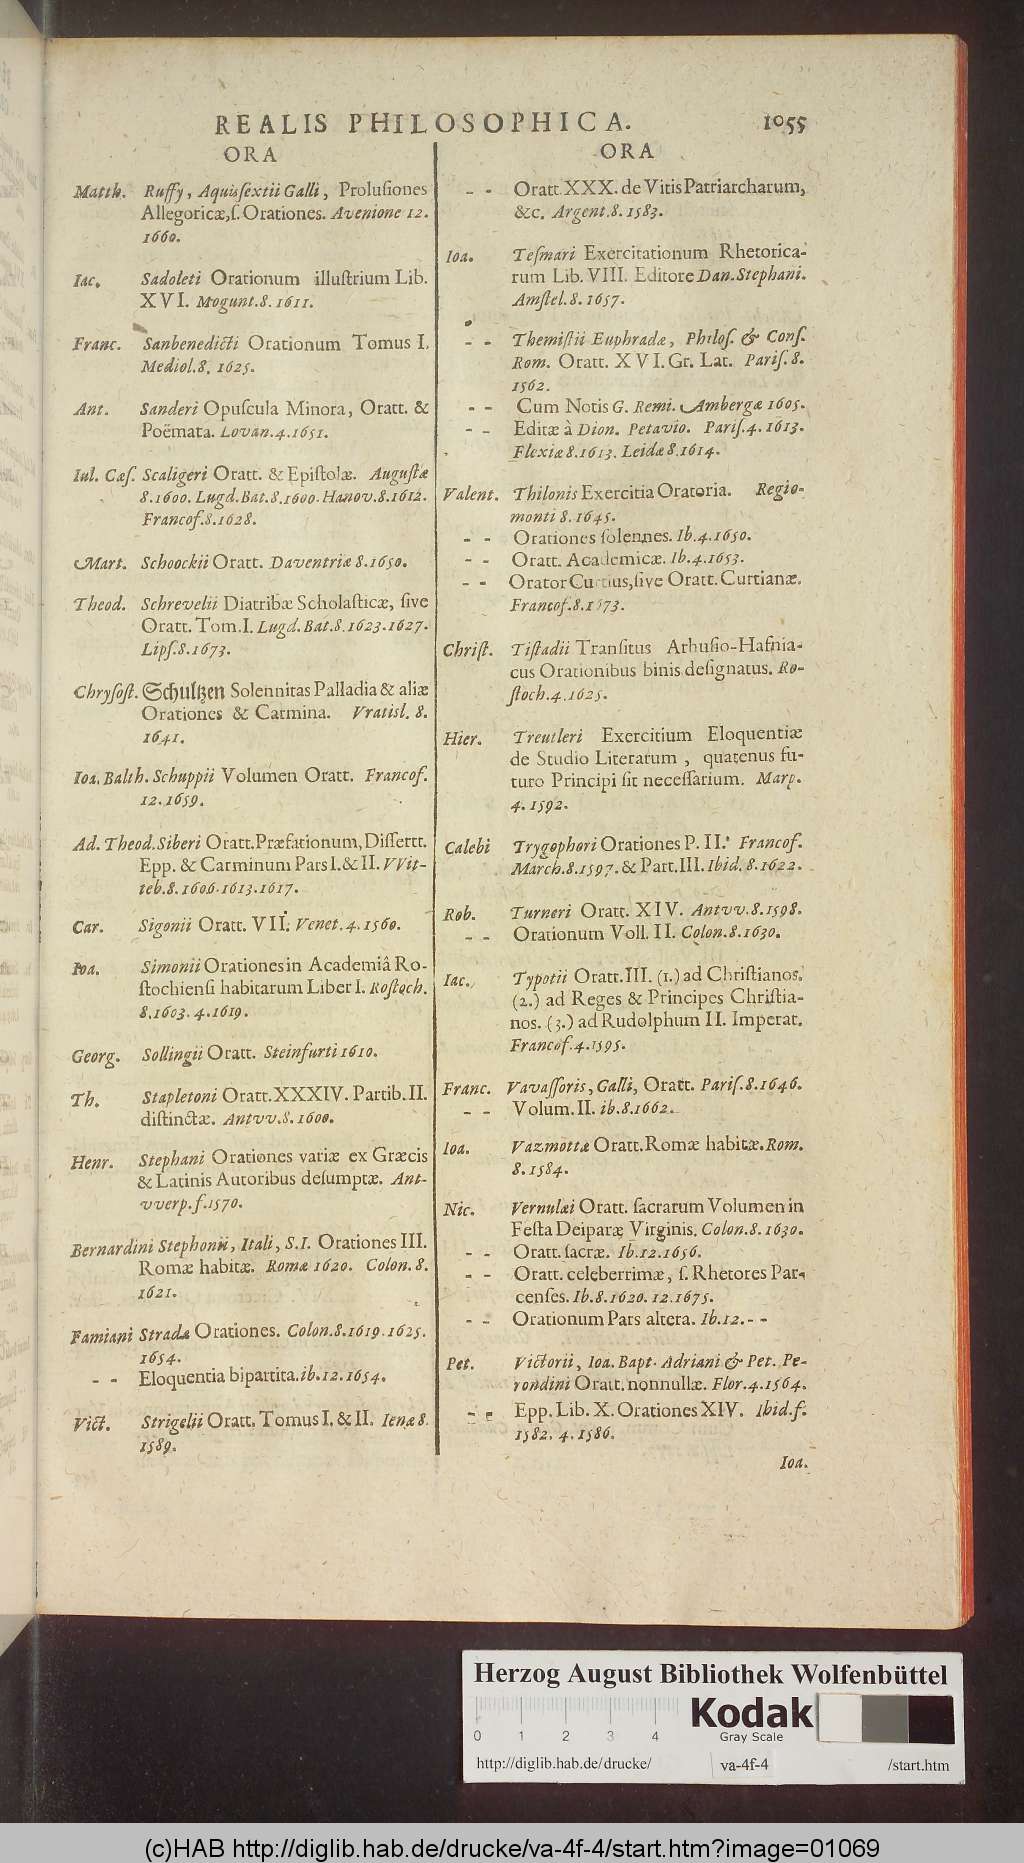 REALIS PHILOSOPHICA. 1055
ORA
Matth. Ruffy, Aquisſextii Galli, Proluſiones
Allegoricæ, ſ. Orationes. Avenione 12.
1660.
Iac. Sadoleti Orationum illuſtrium Lib.
XVI. Mogunt. 8. 1611.
Franc. Sanbenedicti Orationum Tomus I.
Mediol. 8. 1625.
Ant. Sanderi Opuſcula Minora, Oratt. &
Poëmata. Lovan. 4. 1651.
Iul. Cæſ. Scaligeri Oratt. & Epiſtolæ. Auguſtæ
8. 1600. Lugd. Bat. 8. 1600. Hanov. 8. 1612.
Francof. 8. 1628.
Mart. Schoockii Oratt. Daventriæ 8. 1650.
Theod. Schrevelii Diatribæ Scholaſticæ, ſive
Oratt. Tom. I. Lugd. Bat. 8. 1623. 1627.
Lipſ. 8. 1673.
Chryſoſt. Schultzen Solennitas Palladia & aliæ
Orationes & Carmina. Vratisl. 8.
1641.
Ioa. Balth. Schuppii Volumen Oratt. Francof.
12. 1659.
Ad. Theod. Siberi Oratt. Præfationum, Diſſertt.
Epp. & Carminum Pars I. & II. VVit-
teb. 8. 1606. 1613. 1617.
Car. Sigonii Oratt. VII. Venet. 4. 1560.
Ioa. Simonii Orationes in Academiâ Ro-
ſtochienſi habitarum Liber I. Roſtoch.
8. 1603. 4. 1619.
Georg. Sollingii Oratt. Steinfurti 1610.
Th. Stapletoni Oratt. XXXIV. Partib. II.
diſtinctæ. Antvv. 8. 1600.
Henr. Stephani Orationes variæ ex Græcis
& Latinis Autoribus deſumptæ. Ant-
vverp. f. 1570.
Bernardini Stephonii, Itali, S. I. Orationes III.
Romæ habitæ. Romæ 1620. Colon. 8.
1621.
Famiani Stradæ Orationes. Colon. 8. 1619. 1625.
1654.
- - Eloquentia bipartita. ib. 12. 1654.
Vict. Strigelii Oratt. Tomus I. & II. Ienæ 8.
1589.
ORA
- - Oratt. XXX. de Vitis Patriarcharum,
&c. Argent. 8. 1583.
Ioa. Teſmari Exercitationum Rhetorica-
rum Lib. VIII. Editore Dan. Stephani.
Amſtel. 8. 1657.
- - Themiſtii Euphradæ, Philoſ. & Conſ.
Rom. Oratt. XVI. Gr. Lat. Pariſ. 8.
1562.
- - Cum Notis G. Remi. Ambergæ 1605.
- - Editæ à Dion. Petavio. Pariſ. 4. 1613.
Flexiæ 8. 1613. Leidæ 8. 1614.
Valent. Thilonis Exercitia Oratoria. Regio-
monti 8. 1645.
- - Orationes ſolennes. Ib. 4. 1650.
- - Oratt. Academicæ. Ib. 4. 1653.
- - Orator Curtius, ſive Oratt. Curtianæ.
Francof. 8. 1673.
Chriſt. Tiſtadii Tranſitus Arhuſio-Hafnia-
cus Orationibus binis deſignatus. Ro-
ſtoch. 4. 1625.
Hier. Treutleri Exercitium Eloquentiæ
de Studio Literarum, quatenus fu-
turo Principi ſit neceſſarium. Marp.
4. 1592.
Calebi Trygophori Orationes P. II. Francof.
March. 8. 1597. & Part. III. Ibid. 8. 1622.
Rob. Turneri Oratt. XIV. Antvv. 8. 1598.
- - Orationum Voll. II. Colon. 8. 1630.
Iac. Typotii Oratt. III. (1.) ad Chriſtianos.
(2.) ad Reges & Principes Chriſtia-
nos. (3.) ad Rudolphum II. Imperat.
Francof. 4. 1595.
Franc. Vavaſſoris, Galli, Oratt. Pariſ. 8. 1646.
- - Volum. II. ib. 8. 1662.
Ioa. Vazmottæ Oratt. Romæ habitæ. Rom.
8. 1584.
Nic. Vernulæi Oratt. ſacrarum Volumen in
Feſta Deiparæ Virginis. Colon. 8. 1630.
- - Oratt. ſacræ. Ib. 12. 1656.
- - Oratt. celeberrimæ, ſ. Rhetores Par-
cenſes. Ib. 8. 1620. 12. 1675.
- - Orationum Pars altera. Ib. 12. - -
Pet. Victorii, Ioa. Bapt. Adriani & Pet. Pe-
rondini Oratt. nonnullæ. Flor. 4. 1564.
- - Epp. Lib. X. Orationes XIV. Ibid. f.
1582. 4. 1586.
Ioa.
Herzog August Bibliothek Wolfenbüttel
0 1 2 3 4
Kodak
Gray Scale
http://diglib.hab.de/drucke/ va-4f-4 /start.htm
(c)HAB http://diglib.hab.de/drucke/va-4f-4/start.htm?image=01069